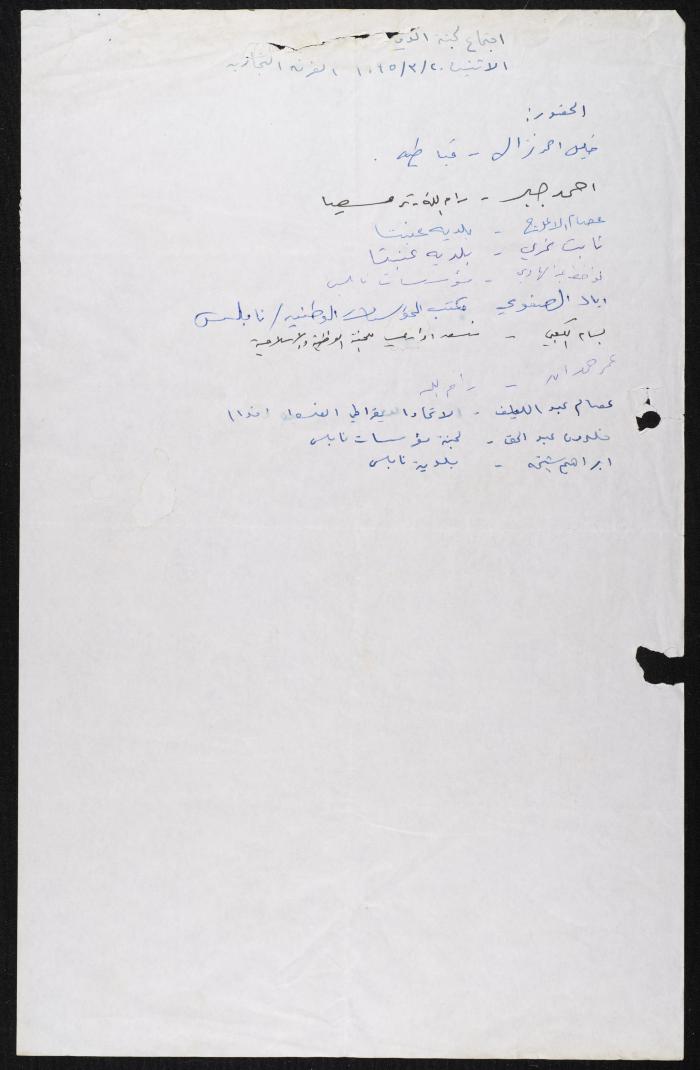 اجتماع لجنة
الاثنين ١٩٩٥/٣/٢٠ الغرفة التجارية
الحضور:
خليل ابو زال - قباطيه
احمد جبر - رام الله - ترمسعيا
عصام الاعرج - بلديه عنبتا
ثابت عمري - بلديه عنبتا
مؤسسات نابلس
اياد الصفوري مكتب المؤسسات الوطنيه / نابلس
بسام الكعبي - للجنة الوطنية والاسلامية
عمر حمدان - رام الله
عصام عبد اللطيف - الاتحاد الديمقراطي الفلسطيني (فدا)
خلدون عبد الحق - لجنة مؤسسات نابلس
ابراهيم شيخه - بلدية نابلس